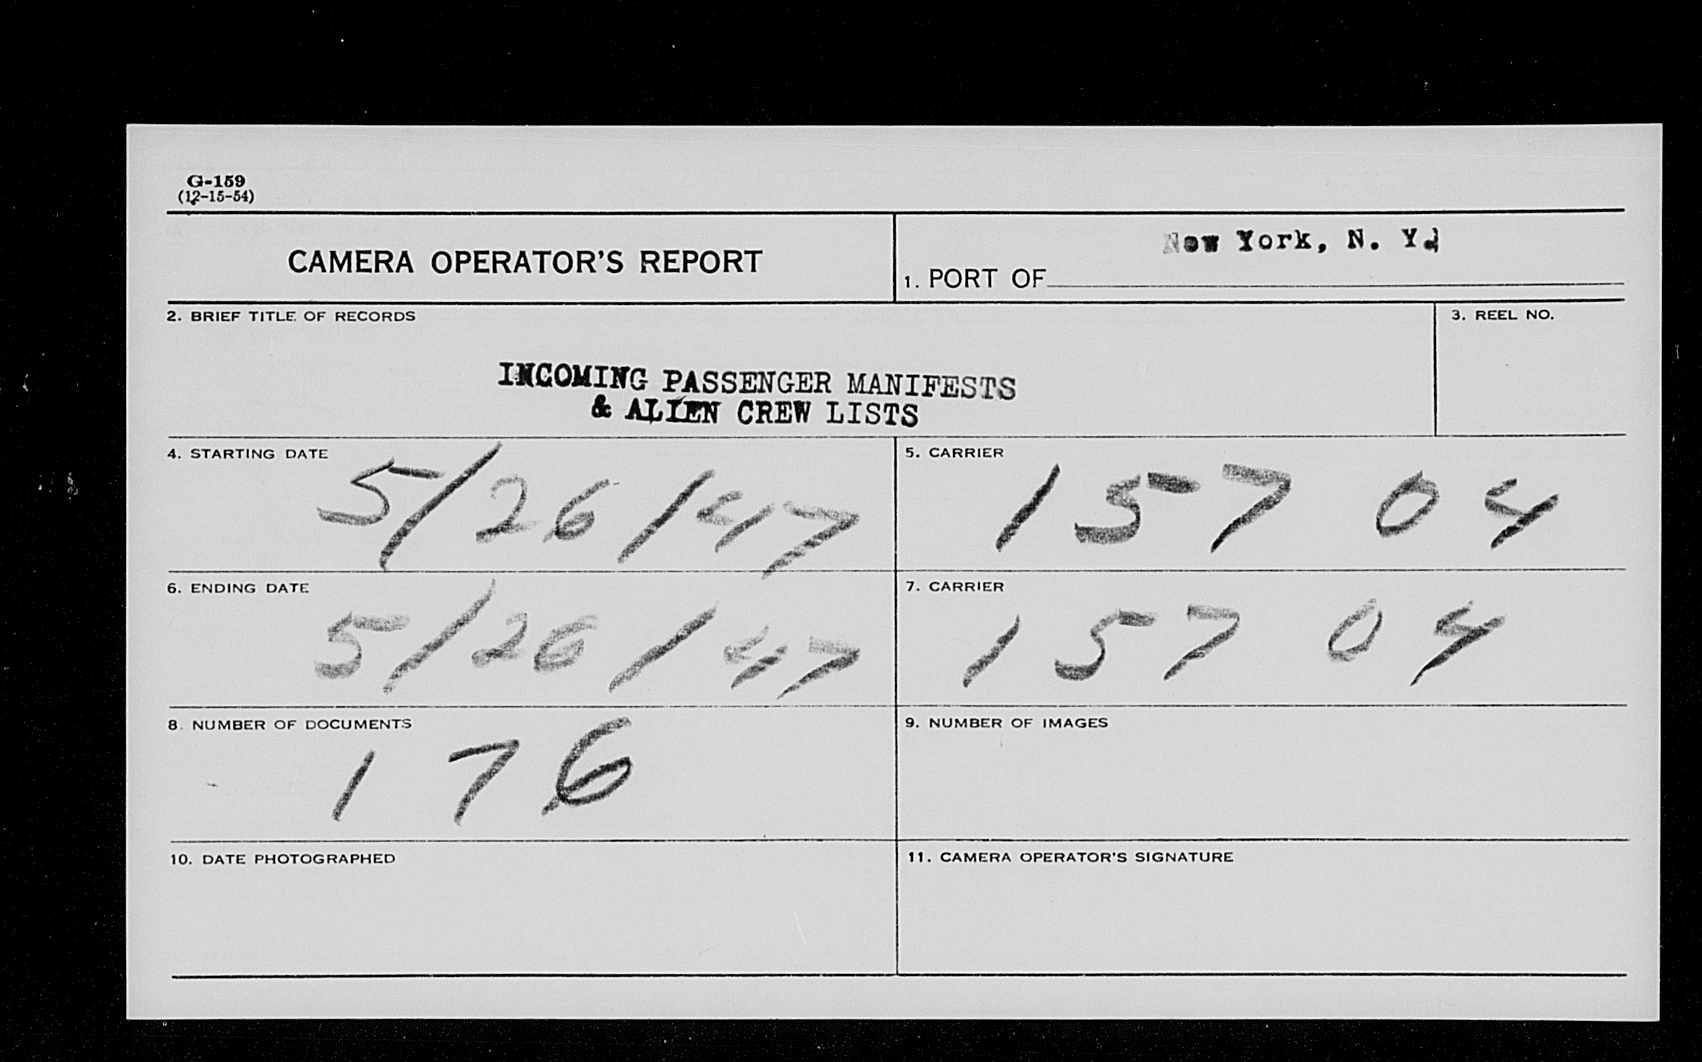 G-159
(12-15-54)
CAMERA OPERATOR'S REPORT
New York, N. Y.
1. PORT OF
2. BRIEF TITLE OF RECORDS
3. REEL NO.
INCOMING PASSENGER MANIFESTS
& ALIEN CREW LISTS
4. STARTING DATE
5/26/47
5. CARRIER
157 04
6. ENDING DATE
5/26/47
7. CARRIER
157 04
8. NUMBER OF DOCUMENTS
176
9. NUMBER OF IMAGES
10. DATE PHOTOGRAPHED
11. CAMERA OPERATOR'S SIGNATURE